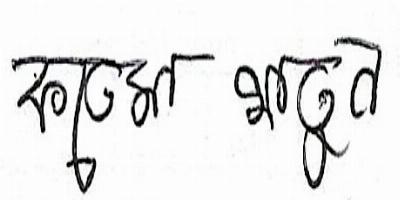 ফাতেমা খাতুন